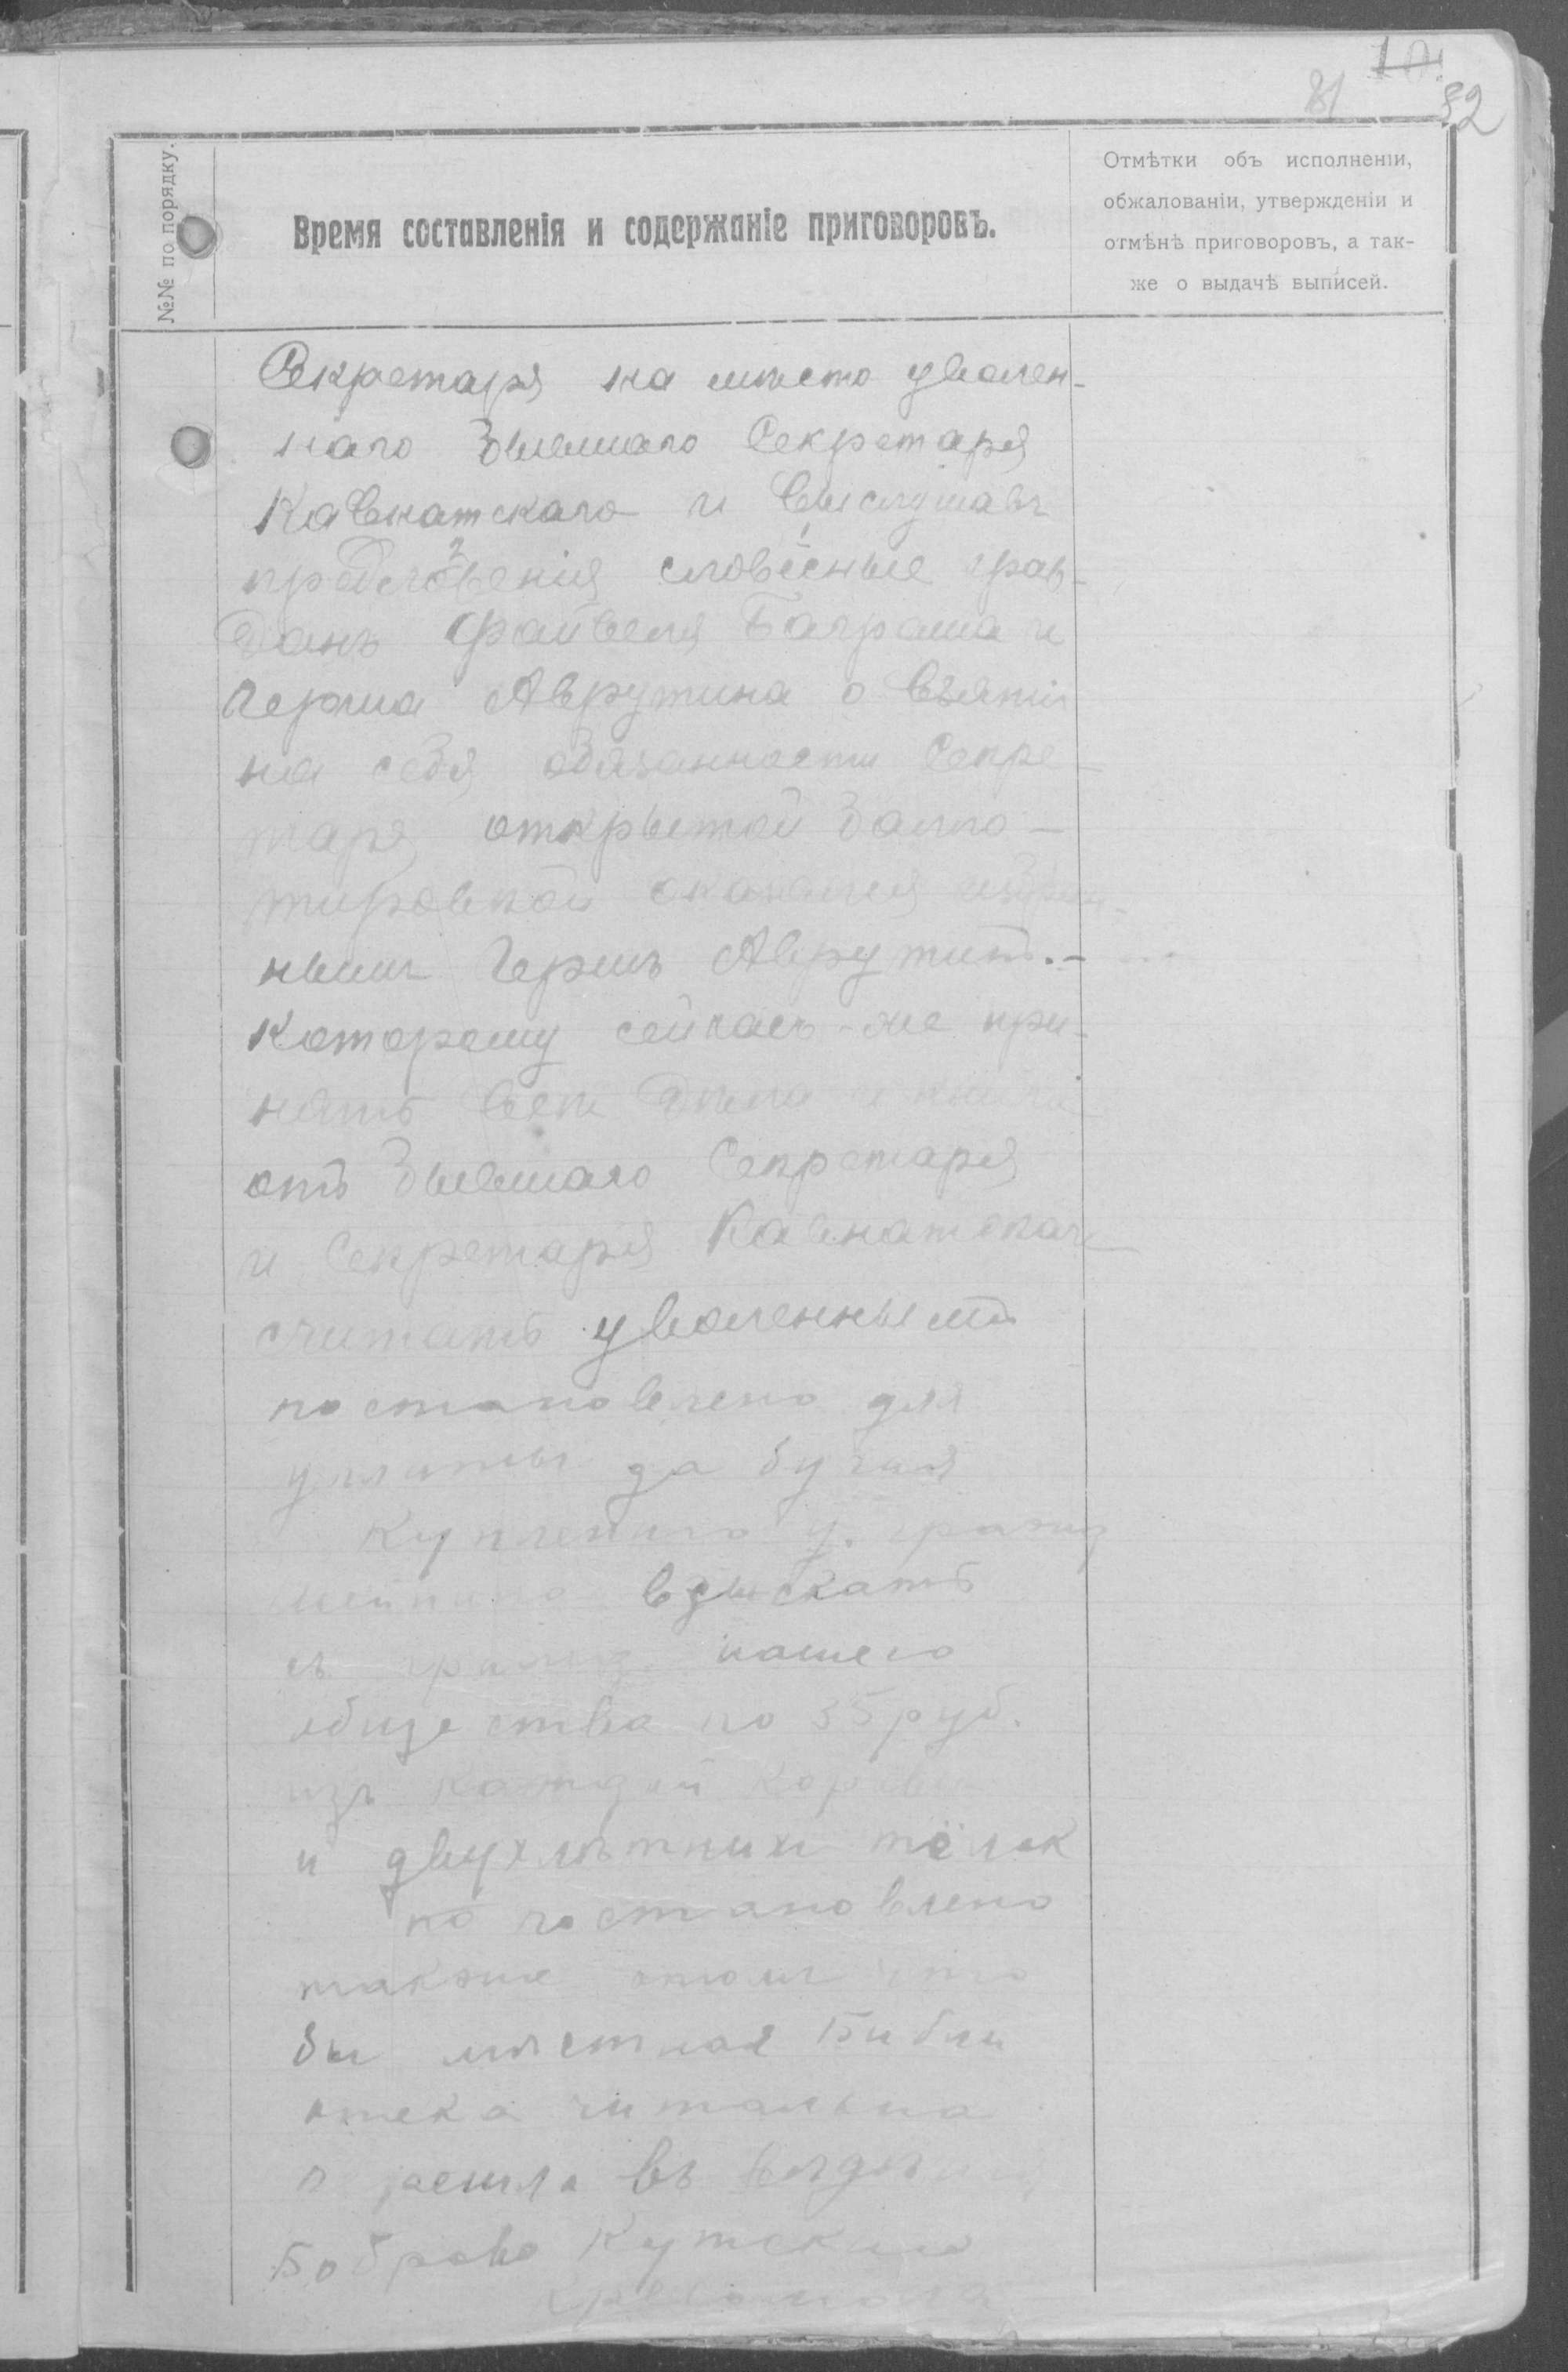 10
81
82
№№ по порядку.
Время составленія и содержаніе приговоровъ.
Отмѣтки объ исполненіи,
обжалованіи, утвержденіи и
отмѣнѣ приговоровъ, а так-
же о выдачѣ выписей.
Секретаря на мѣсто уволен-
наго бывшаго Секретаря
Кавнатскаго и выслушавъ
словесные граж-
данъ Файвеля Баграша и
Герша Аврутина о взятіи
на себя обязанности Секре-
таря, открытой балло-
тировкой оказался избран-
нымъ Гершъ Аврутинъ.-
Которому сейчасъ-же при-
нять всѣ дѣла и книги
отъ бывшаго Секретаря
и Секретаря Кавнатскаго
считать уволеннымъ
постановлено для
уплаты за бугая
Купленнаго у. гражд
взыскать
съ гражд. нашего
общества по 35 руб.
изъ каждой коровы
и двухлѣтних тёлок
постановлено
также что
бы мѣстная Библи
отека читальна
въ
Боброво Кутскаго